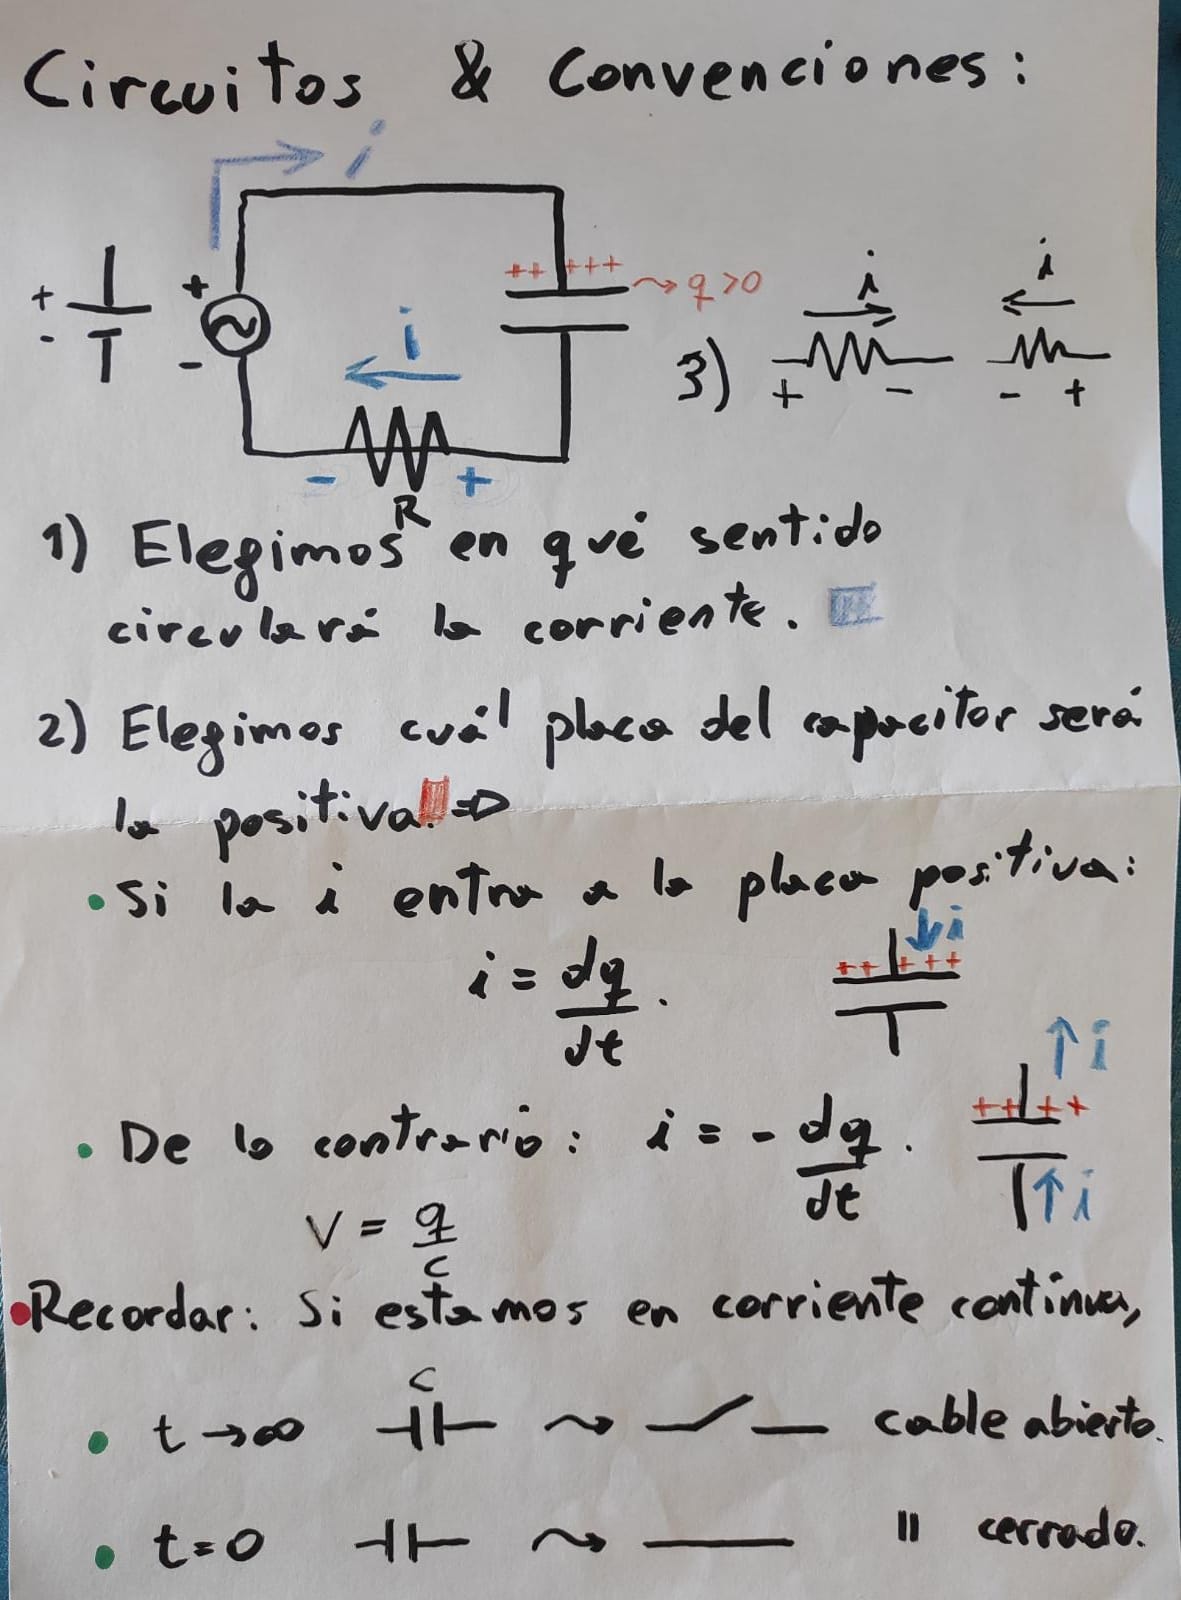 Circuitos & Convenciones:
i
+ -
+ -
++ +++ ~> q>0
i
- +
R
3) i + -
i - +
1) Elegimos en qué sentido
circulará la corriente.
2) Elegimos cuál placa del capacitor será
la positiva. =>
• Si la i entra a la placa positiva:
i = dq/dt.
↓i
++ +++
↑i
++++
• De lo contrario: i = - dq/dt.
↑i
V = q/c
• Recordar: Si estamos en corriente continua,
C
• t→∞ ~> cable abierto.
• t=0 ~> " cerrado.